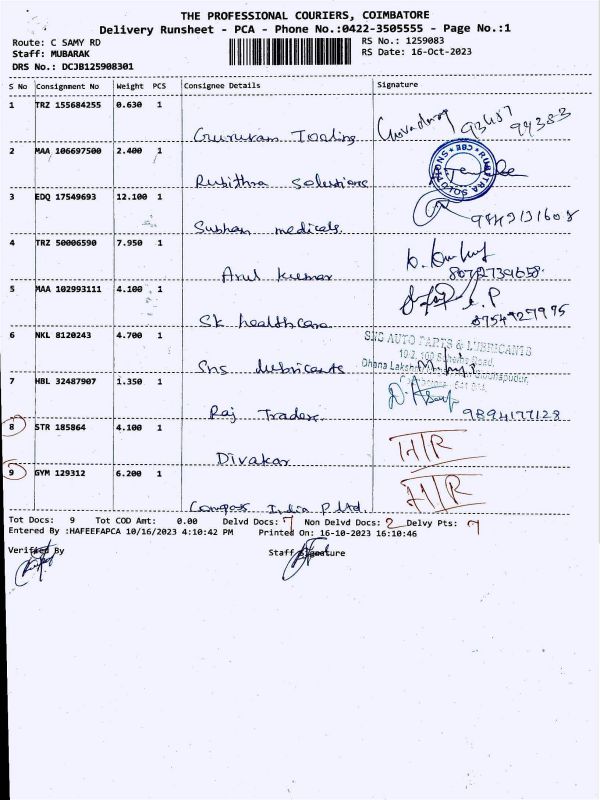 THE PROFESSIONAL COURIERS, COIMBATORE
Delivery Runsheet - PCA - Phone No.:0422-3505555 - Page No.:1
Route: C SAMY RD RS No.: 1259083
Staff: MUBARAK RS Date: 16-Oct-2023
DRS No.: DCJB125908301
S No Consignment No Weight PCS Consignee Details Signature
1 TRZ 155684255 0.630 1
2 MAA 106697500 2.400 1
Rubithra Solutions
3 EDQ 17549693 12.100 1
Subhan medicals. 9842131608
4 TRZ 50006590 7.950 1
Arul kumar
5 MAA 102993111 4.100 1
SK healthcare 8754927995
6 NKL 8120243 4.700 1
SNS AUTO PARTS & LUBRICANTS
Sns lubricants
7 HBL 32487907 1.350 1
Raj Traders. 9894177128
8 STR 185864 4.100 1
Divakar
9 GYM 129312 6.200 1
Compass India P Ltd.
Tot Docs: 9 Tot COD Amt: 0.00 Delvd Docs: 7 Non Delvd Docs: 2 Delvy Pts: 7
Entered By :HAFEEFAPCA 10/16/2023 4:10:42 PM Printed On: 16-10-2023 16:10:46
Verified By Staff Signature